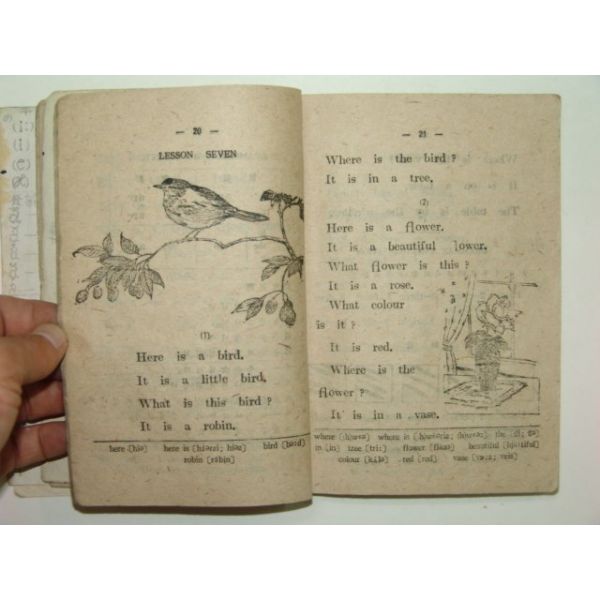 — 20 —
LESSON SEVEN
(1)
Here is a bird.
It is a little bird.
What is this bird ?
It is a robin.
here
here is
bird
robin [rɔbin]
— 21 —
Where is the bird ?
It is in a tree.
(2)
Here is a flower.
It is a beautiful lower.
What flower is this ?
It is a rose.
What colour
is it ?
It is red.
Where is the
flower ?
It is in a vase.
where where is the
in [in] tree [tri:] flower beautiful
colour red [red] vase